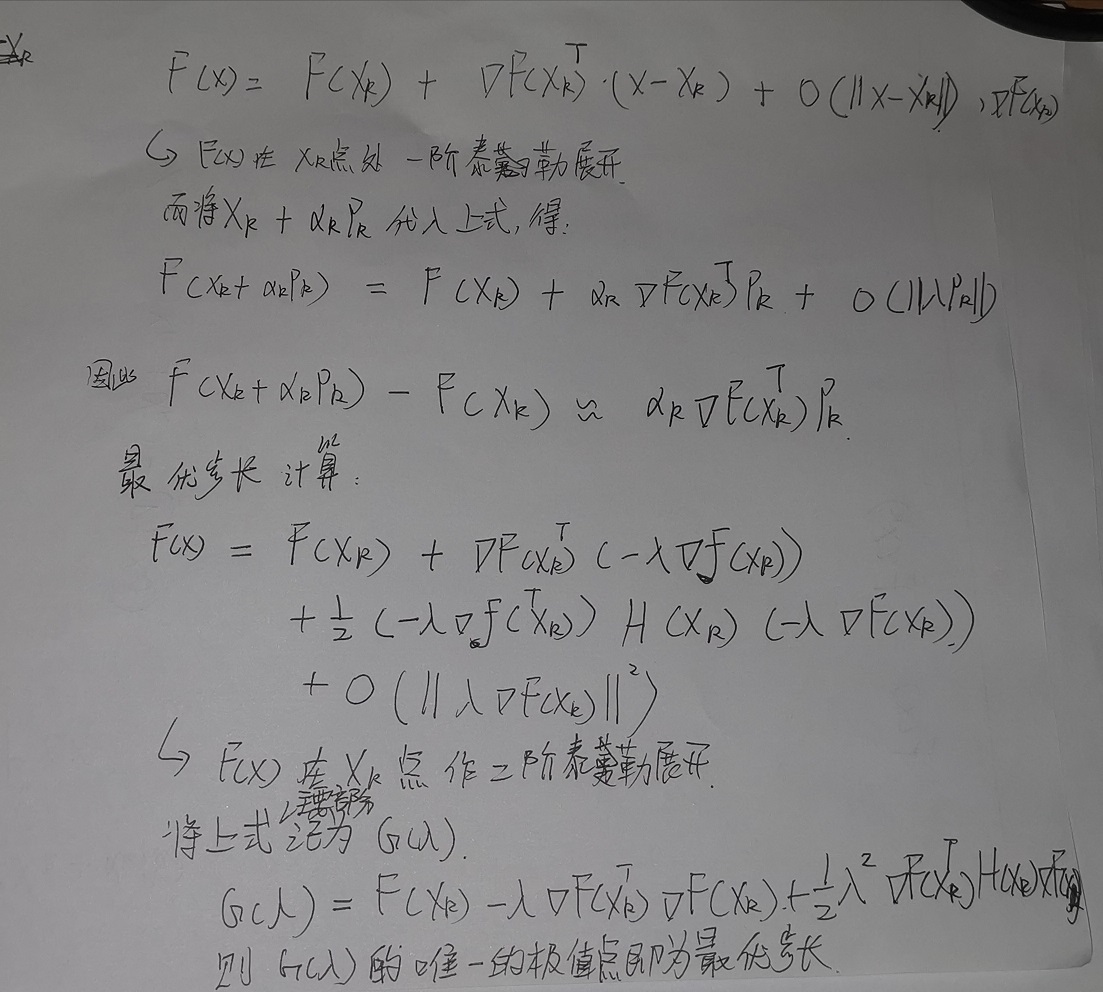 F(x) = F(x_k) + ∇F(x_k)^T · (x-x_k) + O(||x-x_k||), ∇F(x_k)
↳ F(x)在 x_k点处 一阶泰勒展开
而将x_k + α_k P_k 代入上式,得:
F(x_k + α_k P_k) = F(x_k) + α_k ∇F(x_k)^T P_k + O(||λP_k||)
因此 F(x_k + α_k P_k) - F(x_k) ≈ α_k ∇F(x_k)^T P_k
最优步长计算:
F(x) = F(x_k) + ∇F(x_k)^T (-λ∇f(x_k))
+ 1/2 (-λ∇f(x_k)^T) H(x_k) (-λ∇F(x_k))
+ O(||λ∇F(x_k)||²)
↳ F(x)在x_k点作二阶泰勒展开
将上式主要部分记为 G(λ).
G(λ) = F(x_k) - λ∇F(x_k)^T ∇F(x_k) + 1/2 λ² ∇F(x_k)^T H(x_k) ∇F(x_k)
则 G(λ)的唯一的极值点即为最优步长